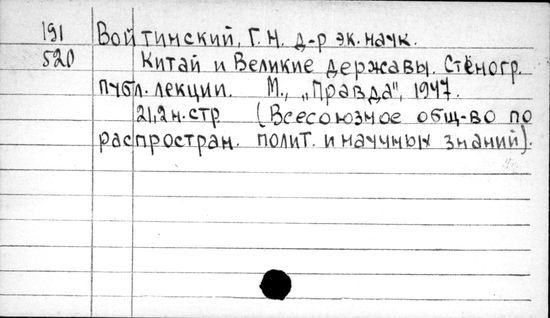 191 Войтинский, Г.Н. д-р эк. наук.
520 Китай и Великие державы. Стеногр.
публ. лекции. М., „Правда", 1947.
21,2 н. стр (Всесоюзное общ-во по
распростран. полит. и научных знаний).